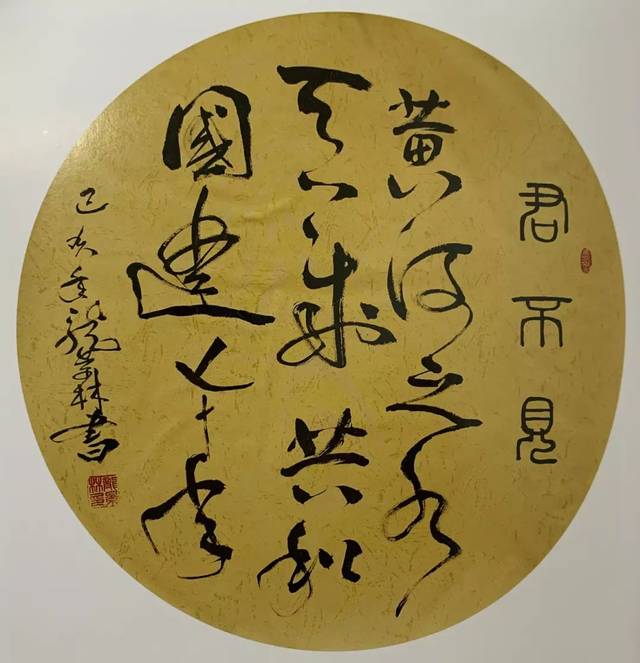 君不見
黄河之水
天上来共和
國建七十年
己亥年龍景林書